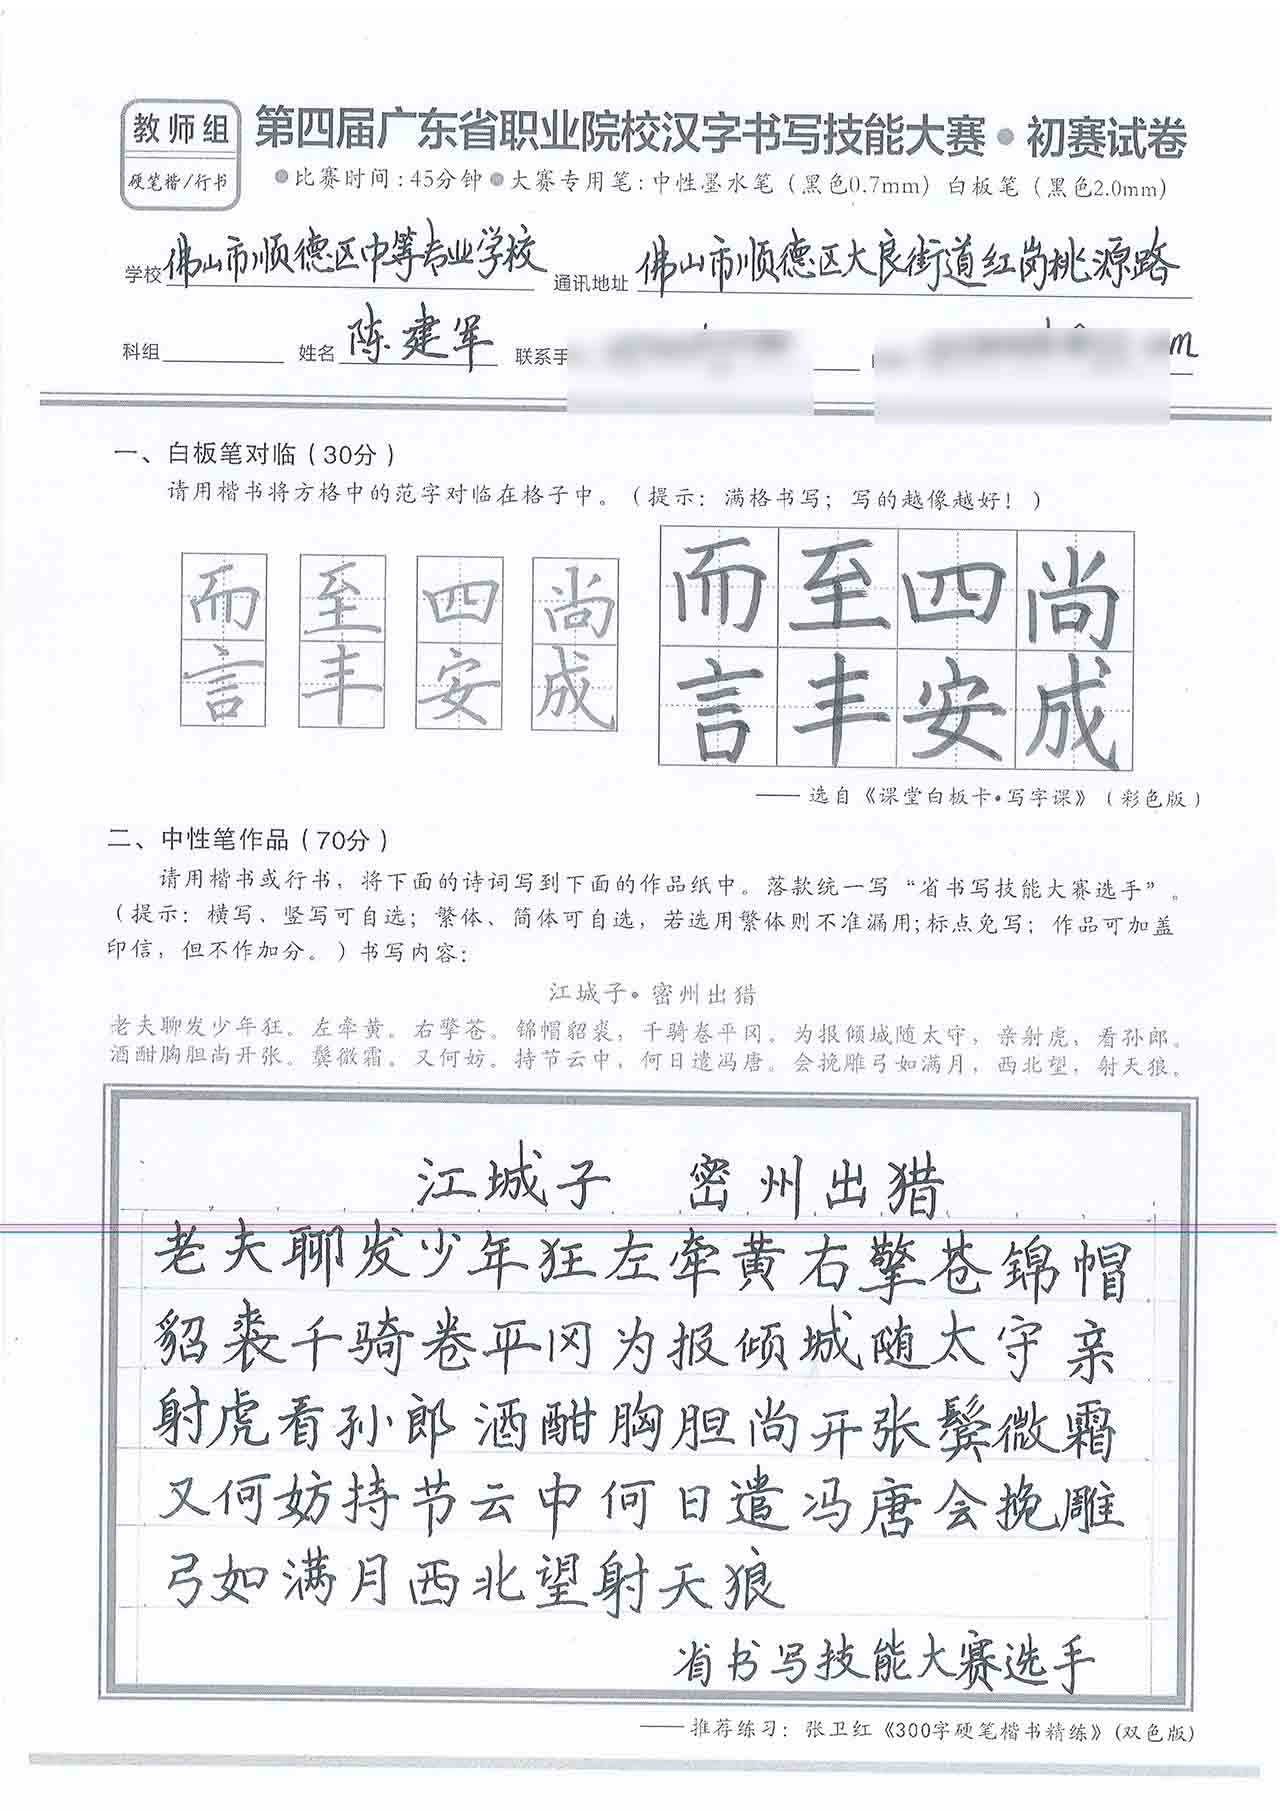 教师组
硬笔楷/行书
第四届广东省职业院校汉字书写技能大赛•初赛试卷
●比赛时间:45分钟●大赛专用笔:中性墨水笔（黑色0.7mm）白板笔（黑色2.0mm）
学校 佛山市顺德区中等专业学校 通讯地址 佛山市顺德区大良街道红岗桃源路
科组 姓名 陈建军 联系手 m
一、白板笔对临（30分）
请用楷书将方格中的范字对临在格子中。（提示：满格书写；写的越像越好！）
而 至 四 尚 而 至 四 尚
言 丰 安 成 言 丰 安 成
——选自《课堂白板卡•写字课》（彩色版）
二、中性笔作品（70分）
请用楷书或行书，将下面的诗词写到下面的作品纸中。落款统一写“省书写技能大赛选手”。
（提示：横写、竖写可自选；繁体、简体可自选，若选用繁体则不准漏用;标点免写；作品可加盖
印信，但不作加分。）书写内容：
江城子•密州出猎
老夫聊发少年狂。左牵黄。右擎苍。锦帽貂裘，千骑卷平冈。为报倾城随太守，亲射虎，看孙郎。
酒酣胸胆尚开张。鬓微霜。又何妨。持节云中，何日遣冯唐。会挽雕弓如满月，西北望，射天狼。
江城子 密州出猎
老夫聊发少年狂左牵黄右擎苍锦帽
貂裘千骑卷平冈为报倾城随太守亲
射虎看孙郎酒酣胸胆尚开张鬓微霜
又何妨持节云中何日遣冯唐会挽雕
弓如满月西北望射天狼
省书写技能大赛选手
——推荐练习：张卫红《300字硬笔楷书精练》(双色版)